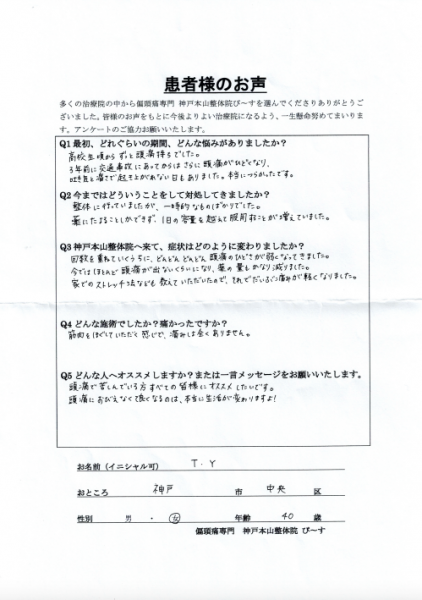 患者様のお声
多くの治療院の中から偏頭痛専門 神戸本山整体院び〜すを選んでくださりありがとうご
ざいました。皆様のお声をもとに今後よりよい治療院になるよう、一生懸命努めてまいりま
す。アンケートのご協力お願いいたします。
Q1 最初、どれぐらいの期間、どんな悩みがありましたか?
高校生頃から ずっと頭痛持ちでした。
3年前に交通事故にあってからはさらに頭痛がひどくなり、
吐き気と痛さで起き上がれない日もありました。本当につらかったです。
Q2 今まではどういうことをして対処してきましたか?
整体に行っていましたが、一時的なものばかりでした。
薬にたよることしかできず、1日の容量を越えて服用することが増えていました。
Q3 神戸本山整体院へ来て、症状はどのように変わりましたか?
回数を重ねていくうちに、どんどんどんどん頭痛のひどさが弱くなってきました。
今ではほとんど 頭痛が出ないくらいになり、薬の量もかなり減りました。
家でのストレッチ法なども 教えていただいたので、それでだいぶ痛みが軽くなりました。
Q4 どんな施術でしたか?痛かったですか?
筋肉をほぐしていただく感じで、痛みは全くありません。
Q5 どんな人へオススメしますか?または一言メッセージをお願いいたします。
頭痛で苦しんでいる方すべての皆様にオススメしたいです。
頭痛におびえなくて良くなるのは、本当に生活が変わりますよ!
お名前(イニシャル可) T.Y
おところ 神戸 市 中央 区
性別 男 ・ 女 年齢 40 歳
偏頭痛専門 神戸本山整体院 び〜す